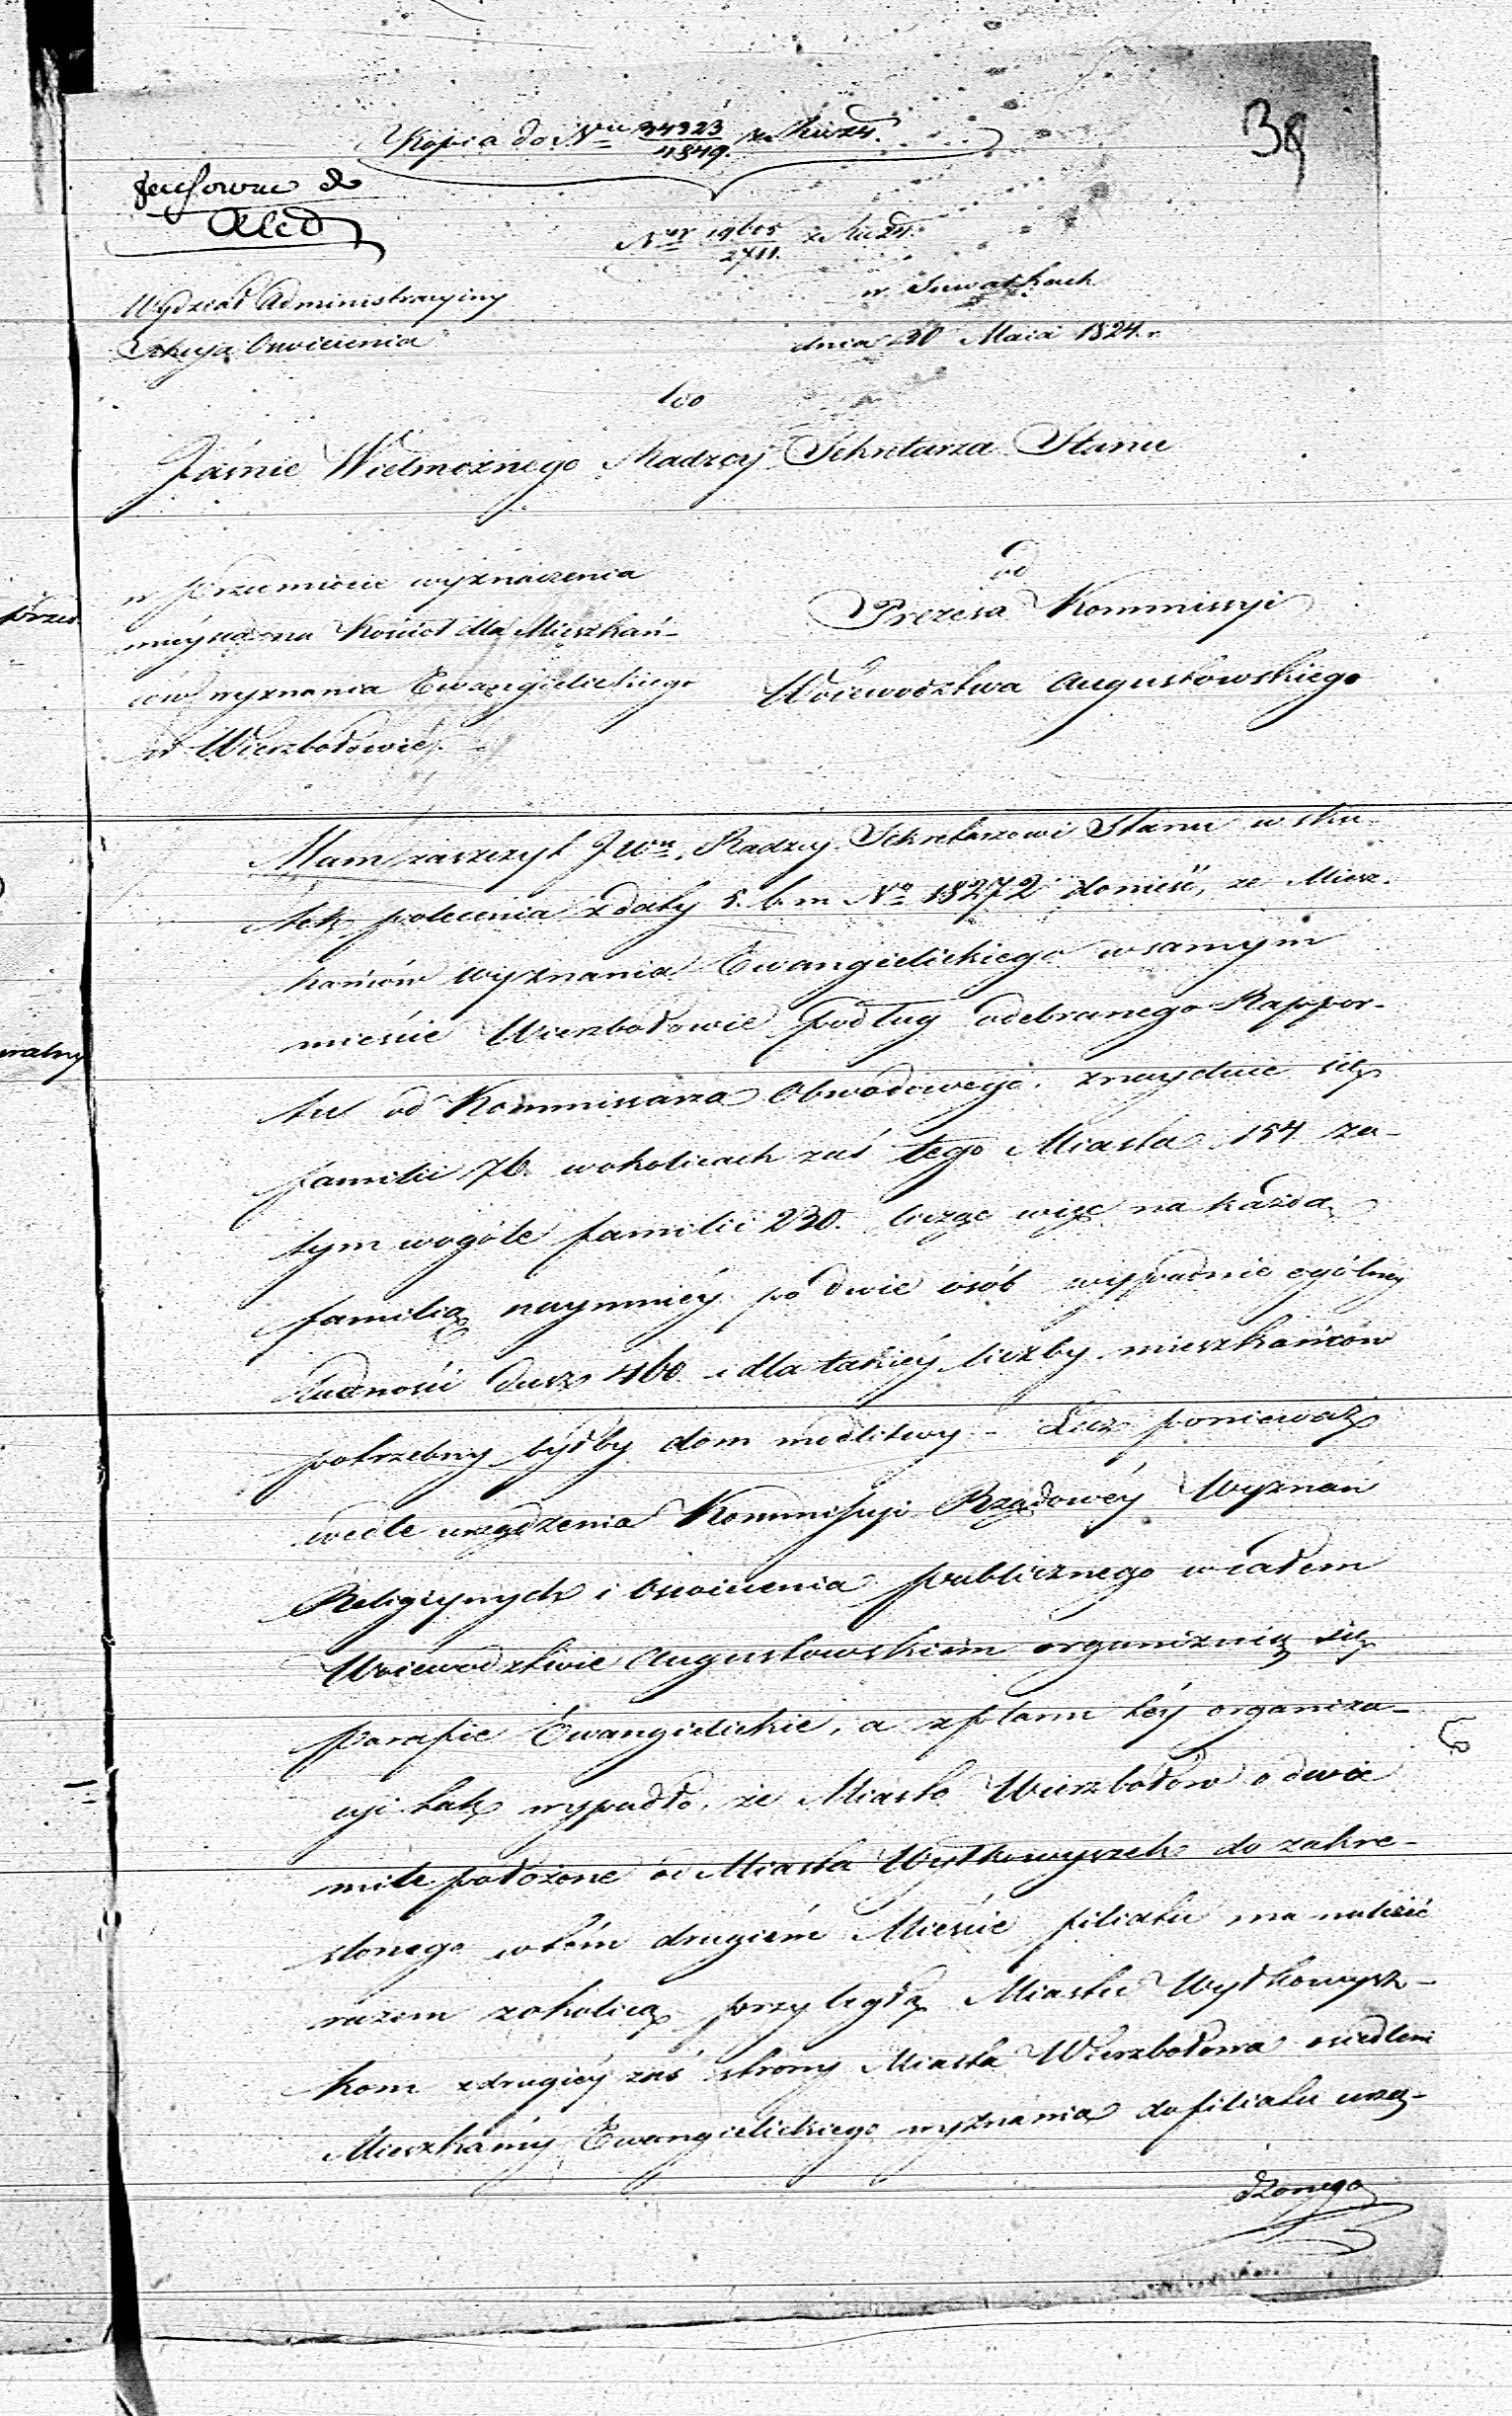 Kopia do Nru 34923/4849. z Ru 24.
39
Nr 19605/2711. z Ru 24.
Wydział Administracyiny
w Suwałkach
Sekcyja Oswiecenia
dnia 30 Maia 1824. r.
Do
Jaśnie Wielmożnego Radzcy Sekretarza Stanu
w Przemiocie wyznaczenia
mieysca na Kościoł dla Mieszkań-
ców wyznania Ewangielickiego
w Wierzbołowie.
od
Prezesa Kommissyi
Woiewodztwa Augustowskiego
Mam zaszczyt JWu. Radzcy Sekretarzowi Stanu w sku-
tek polecenia z daty 5. b. m No 18272 donieść, że Miesz-
kańców wyznania Ewangielickiego w samym
mieście Wierzbołowie podług odebranego Rappor-
tu od Kommissarza Obwodowego. znayduie się
familii 76. w okolicach zaś tego Miasta 154 za-
tym wogóle familii 230. licząc więc na każdą
familią naymniéy po dwie osób wypadnie ogólnéy
ludności dusz 460 i dla takiéy liczby mieszkańców
potrzebny byłby dom modlitwy - Lecz ponieważ
wedle urządzenia Kommissyi Rządowéy Wyznań
Religiynych i Oswiecenia publicznego w całem
Woiewodztwie Augustowskiém organizuią się
parafie Ewangielickie, a z planu téy organiza-
cyi tak wypadło, że Miasto Wierzbołów o dwie
mile położone od Miasta Wyłkowyszek do zakre-
slonego w tém drugiém Mieście filiału ma należeć
razem z okolicą przyległą Miastu Wyłkowysz-
kom z drugiéy zaś strony Miasta Wierzbołowa osiedleni
Mieszkańcy Ewangielickiego wyznania do filiału urzą-
dzonego